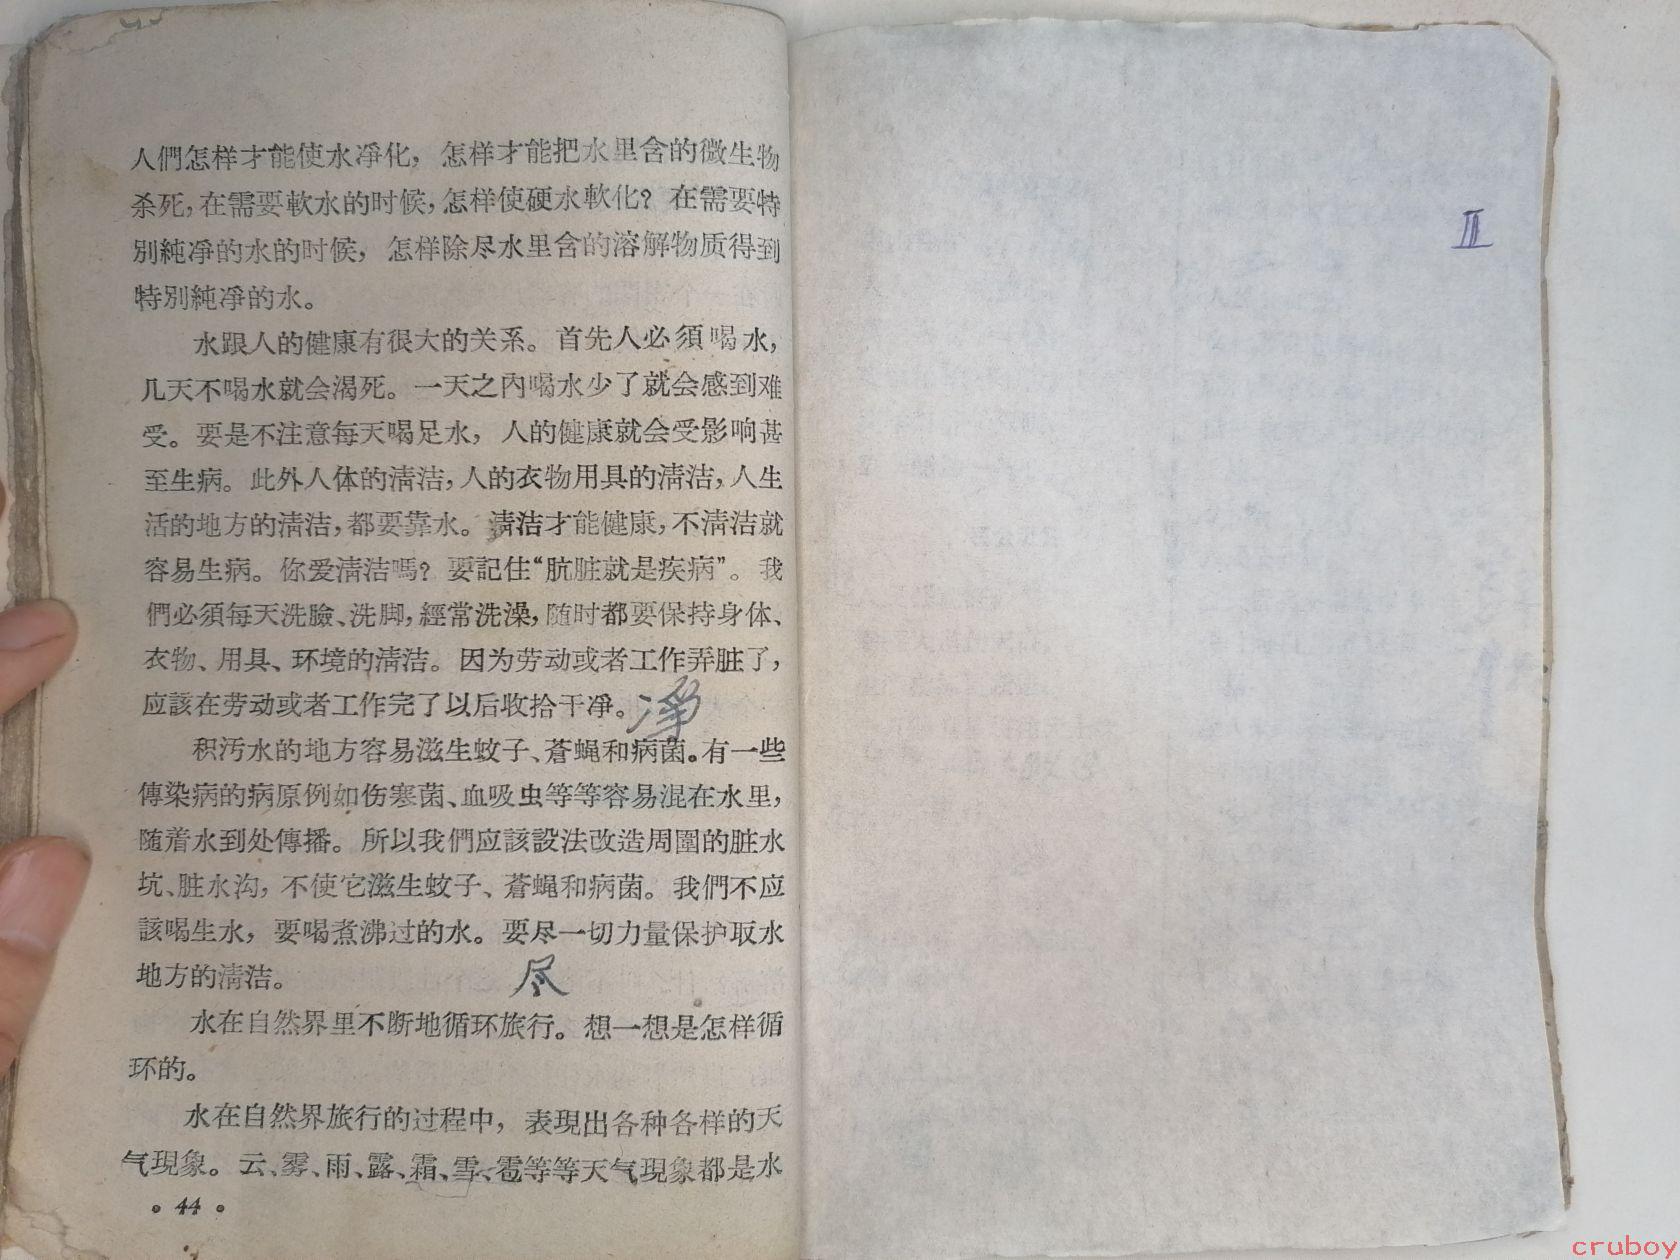 人們怎样才能使水凈化，怎样才能把水里含的微生物
杀死，在需要軟水的时候，怎样使硬水軟化？在需要特
别純凈的水的时候，怎样除尽水里含的溶解物质得到
特别純凈的水。
水跟人的健康有很大的关系。首先人必須喝水，
几天不喝水就会渴死。一天之內喝水少了就会感到难
受。要是不注意每天喝足水，人的健康就会受影响甚
至生病。此外人体的清洁，人的衣物用具的清洁，人生
活的地方的清洁，都要靠水。清洁才能健康，不清洁就
容易生病。你爱清洁嗎？要記住“肮脏就是疾病”。我
們必須每天洗臉、洗脚，經常洗澡，随时都要保持身体、
衣物、用具、环境的清洁。因为劳动或者工作弄脏了，
应該在劳动或者工作完了以后收拾干凈。
凈
积污水的地方容易滋生蚊子、蒼蝇和病菌。有一些
傳染病的病原例如伤寒菌、血吸虫等等容易混在水里，
随着水到处傳播。所以我們应該設法改造周圍的脏水
坑、脏水沟，不使它滋生蚊子、蒼蝇和病菌。我們不应
該喝生水，要喝煮沸过的水。要尽一切力量保护取水
地方的清洁。
尽
水在自然界里不断地循环旅行。想一想是怎样循
环的。
水在自然界旅行的过程中，表現出各种各样的天
气現象。云、雾、雨、露、霜、雪、雹等等天气現象都是水
• 44 •
Ⅲ
cruboy